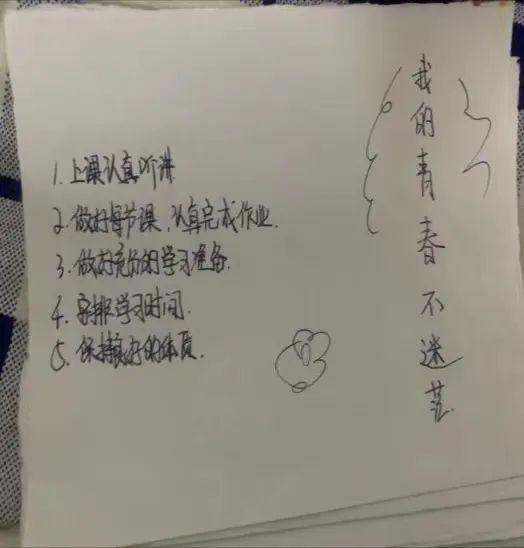 我的青春不迷茫
1. 上课认真听讲
2. 做好每节课,认真完成作业.
3. 做好充分的学习准备.
4. 安排学习时间.
5. 保持良好的体质.